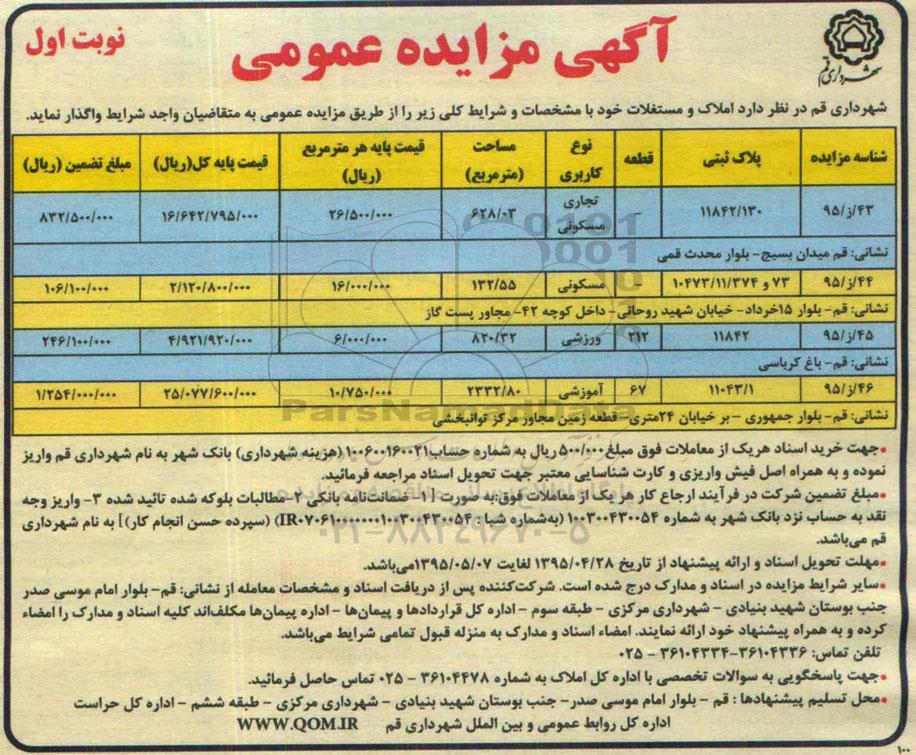 شهرداری قم
آگهی مزایده عمومی
نوبت اول
شهرداری قم در نظر دارد املاک و مستغلات خود با مشخصات و شرایط کلی زیر را از طریق مزایده عمومی به متقاضیان واجد شرایط واگذار نماید.
شناسه مزایده | پلاک ثبتی | قطعه | نوع کاربری | مساحت (مترمربع) | قیمت پایه هر مترمربع (ریال) | قیمت پایه کل(ریال) | مبلغ تضمین (ریال)
۴۳/ز/۹۵ | ۱۱۸۴۲/۱۳۰ | - | تجاری مسکونی | ۶۲۸/۰۳ | ۲۶/۵۰۰/۰۰۰ | ۱۶/۶۴۲/۷۹۵/۰۰۰ | ۸۳۲/۵۰۰/۰۰۰
نشانی: قم میدان بسیج- بلوار محدث قمی
۴۴/ز/۹۵ | ۷۳ و ۱۰۴۷۳/۱۱/۳۷۴ | - | مسکونی | ۱۳۲/۵۵ | ۱۶/۰۰۰/۰۰۰ | ۲/۱۲۰/۸۰۰/۰۰۰ | ۱۰۶/۱۰۰/۰۰۰
نشانی: قم- بلوار ۱۵خرداد- خیابان شهید روحانی- داخل کوچه ۴۲- مجاور پست گاز
۴۵/ز/۹۵ | ۱۱۸۴۲ | ۲۱۲ | ورزشی | ۸۲۰/۳۲ | ۶/۰۰۰/۰۰۰ | ۴/۹۲۱/۹۲۰/۰۰۰ | ۲۴۶/۱۰۰/۰۰۰
نشانی: قم- باغ کرباسی
۴۶/ز/۹۵ | ۱۱۰۴۳/۱ | ۶۷ | آموزشی | ۲۳۳۲/۸۰ | ۱۰/۷۵۰/۰۰۰ | ۲۵/۰۷۷/۶۰۰/۰۰۰ | ۱/۲۵۴/۰۰۰/۰۰۰
نشانی: قم- بلوار جمهوری -بر خیابان ۲۴متری- قطعه زمین مجاور مرکز توانبخشی
ParsNamadData
•جهت خرید اسناد هریک از معاملات فوق مبلغ۵۰۰/۰۰۰ ریال به شماره حساب۱۰۰۶۰۰۱۶۰۰۲۱(هزینه شهرداری) بانک شهر به نام شهرداری قم واریز
نموده و به همراه اصل فیش واریزی و کارت شناسایی معتبر جهت تحویل اسناد مراجعه فرمائید.
•مبلغ تضمین شرکت در فرآیند ارجاع کار هر یک از معاملات فوق:به صورت [۱- ضمانت‌نامه بانکی ۲- مطالبات بلوکه شده تائید شده ۳- واریز وجه
نقد به حساب نزد بانک شهر به شماره ۱۰۰۳۰۰۴۳۰۰۵۴ (به‌شماره شبا : IR۰۷۰۶۱۰۰۰۰۰۰۰۱۰۰۳۰۰۴۳۰۰۵۴) (سپرده حسن انجام کار)] به نام شهرداری
قم می‌باشد.
۰۲۱-۸۸۳۴۹۶۷۰-۵
•مهلت تحویل اسناد و ارائه پیشنهاد از تاریخ ۱۳۹۵/۰۴/۲۸ لغایت ۱۳۹۵/۰۵/۰۷می‌باشد.
•سایر شرایط مزایده در اسناد و مدارک درج شده است. شرکت‌کننده پس از دریافت اسناد و مشخصات معامله از نشانی: قم- بلوار امام موسی صدر
جنب بوستان شهید بنیادی - شهرداری مرکزی - طبقه سوم - اداره کل قراردادها و پیمان‌ها - اداره پیمان‌ها مکلف‌اند کلیه اسناد و مدارک را امضاء
کرده و به همراه پیشنهاد خود ارائه نمایند. امضاء اسناد و مدارک به منزله قبول تمامی شرایط می‌باشد.
تلفن تماس: ۳۶۱۰۴۳۳۶-۳۶۱۰۴۳۳۴ - ۰۲۵
•جهت پاسخگویی به سوالات تخصصی با اداره کل املاک به شماره ۳۶۱۰۴۴۷۸ - ۰۲۵ تماس حاصل فرمائید.
•محل تسلیم پیشنهادها : قم - بلوار امام موسی صدر- جنب بوستان شهید بنیادی - شهرداری مرکزی - طبقه ششم - اداره کل حراست
اداره کل روابط عمومی و بین الملل شهرداری قم WWW.QOM.IR
۱۰۰